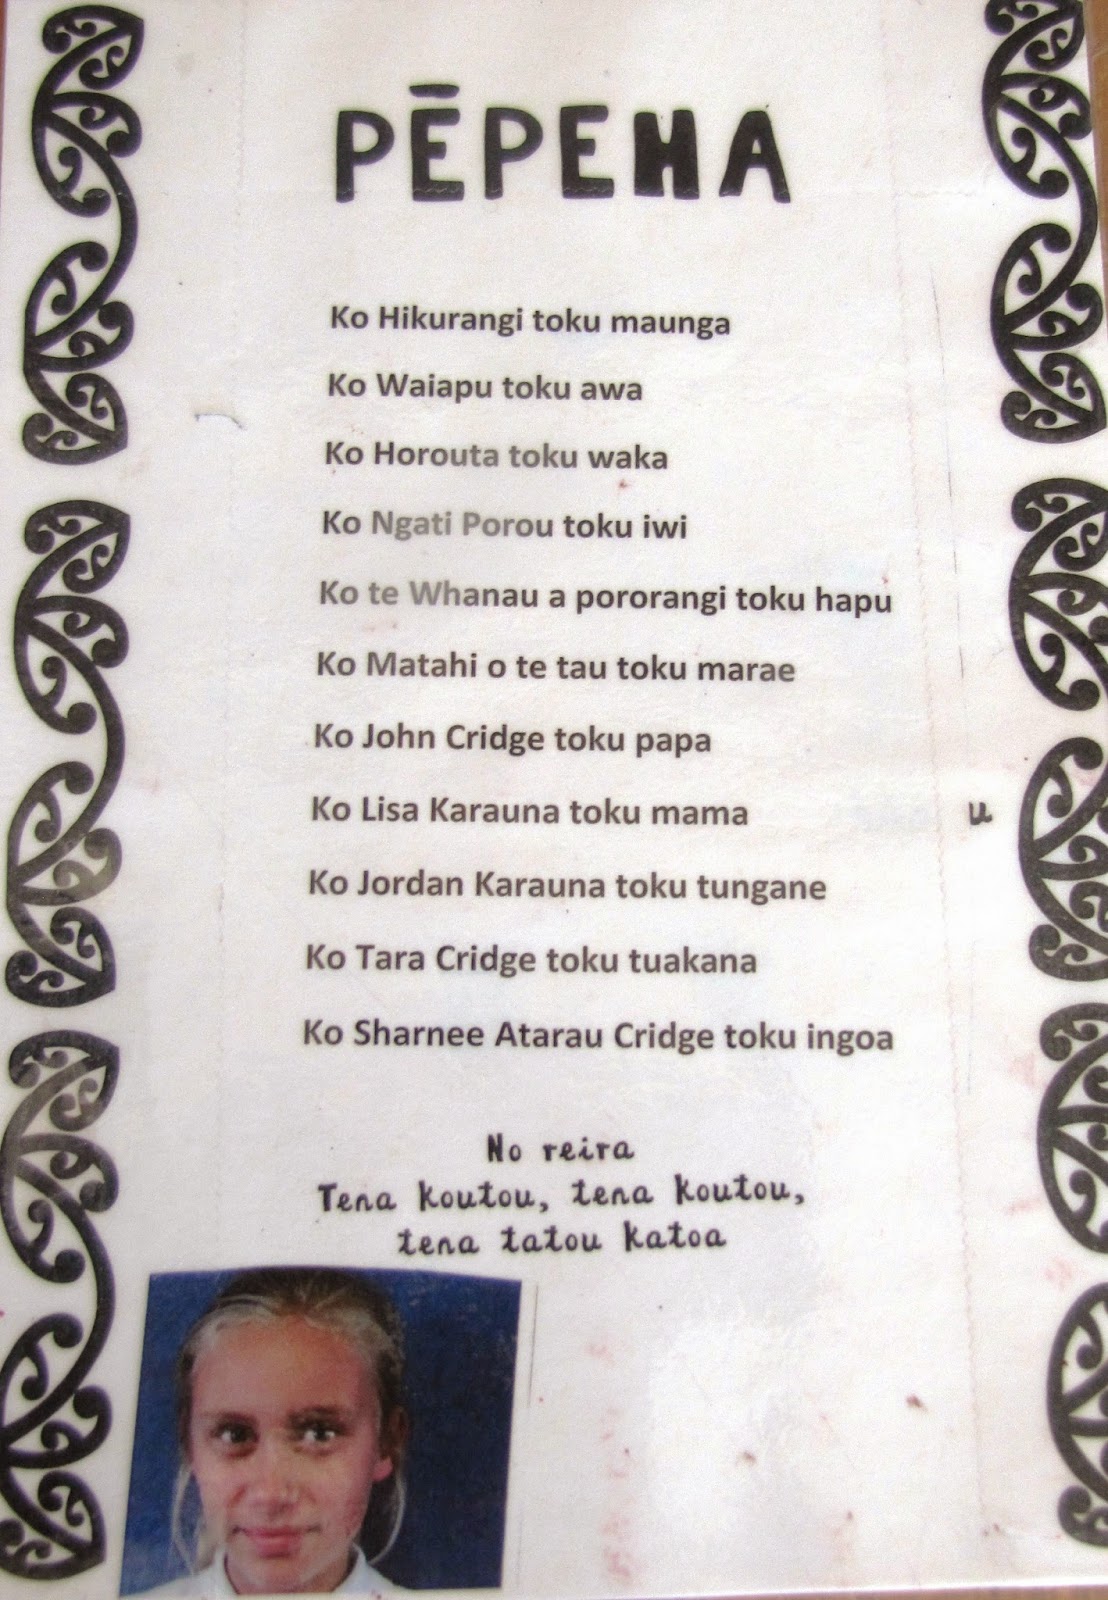 PĒPEHA
Ko Hikurangi toku maunga
Ko Waiapu toku awa
Ko Horouta toku waka
Ko Ngati Porou toku iwi
Ko te Whanau a pororangi toku hapu
Ko Matahi o te tau toku marae
Ko John Cridge toku papa
Ko Lisa Karauna toku mama
u
Ko Jordan Karauna toku tungane
Ko Tara Cridge toku tuakana
Ko Sharnee Atarau Cridge toku ingoa
No reira
Tena koutou, tena koutou,
tena tatou katoa